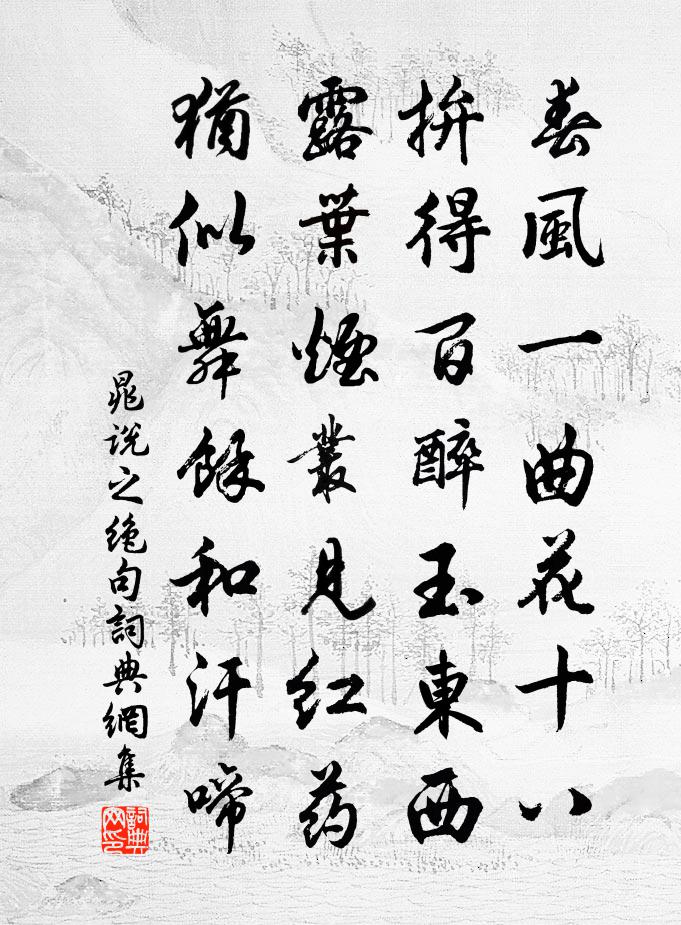 春風一曲花十八
拚得百醉玉東西
露葉煙叢見红药
猶似舞餘和汗啼
晁说之绝句詞典網集
詞典网印